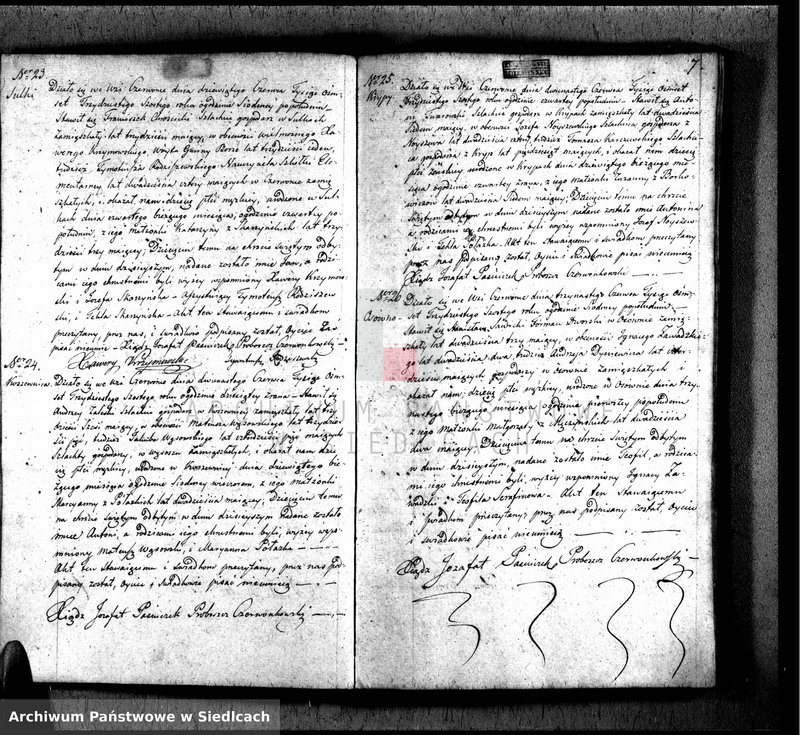 Ner 23.
Sulki
Działo się we Wsi Czerwonce dnia dziewiątego Czerwca Tysiąc Ośm-
set Trzydziestego Szóstego roku o godzinie Siódmey popołudniu
Stawił się Franciszek Szlachcic gospodarz w Sulkach
zamięszkały lat trzydzieści maiący, w obecności wielmożnego Xa-
werego Krzymowskiego, Woyta Gminy lat trzydzieści ieden,
tudzież Tymoteusza Radziszewskiego Nauczyciela Szkółki Ele-
mentarney lat dwadzieścia cztery maiących w Czerwonce zamię-
szkałych, i okazał nam dziecię płci męzkiey, urodzone w Sul-
kach dnia czwartego bieżącego miesiąca, o godzinie czwartey po-
południu, z iego małżonki Katarzyny z Skarzyńskich lat trzy-
dzieści trzy maiącey; Dziecięciu temu na chrzcie świętym odby-
tym w dniu dzisieyszym, nadane zostało imie Jan, a rodzi-
cami iego chrzestnemi byli wyżey wspomniony Xawery Krzymow-
ski, i Józefa Skarzyńska - Assystuiący Tymoteusz Radziszew-
ski, i Tekla Skarzyńska - Akt ten Stawaiącemu i świadkom
przeczytany, przez nas, i świadków podpisany został, Oyciec Za-
pisać nieumie - Xiądz Jozafat Paśniczek Proboszcz Czerwonkowski -
Xawery Krzymowski
Ner 24.
Działo się we Wsi Czerwonce dnia dwunastego Czerwca Tysiąc Ośm-
set Trzydziestego Szóstego roku o godzinie dziesiątey zrana - Stawił się
Andrzey Załuska Szlachcic gospodarz w zamięszkały lat trzy-
dzieści Sześć maiący, w obecności Mateusza Wąsowskiego lat trzydzie-
ści pięć, tudzież Jakuba Wąsowskiego lat czterdzieści pięć maiących
Szlachty gospodarzy, w zamięszkałych, i okazał nam dzie-
cię płci męzkiey, urodzone w dnia dziewiątego bie-
żącego miesiąca o godzinie Siódmey wieczorem, z iego małżonki
Maryanny z Połazkich lat dwadzieścia maiącey; Dziecięciu temu
na chrzcie świętym odbytym w dniu dzisieyszym nadane zostało
imie Antoni, a rodzicami iego chrzestnemi byli, wyżey wspo-
mniony Mateusz Wąsowski, i Maryanna Połazka
Akt ten Stawaiącemu i świadkom przeczytany, przez nas pod-
pisany został, Oyciec i świadkowie pisać nieumieią
Xiądz Jozafat Paśniczek Proboszcz Czerwonkowski
7
Ner 25.
Krypy
Działo się we Wsi Czerwonce dnia dwunastego Czerwca Tysiąc Ośmset
Trzydziestego Szóstego roku o godzinie czwartey popołudniu. Stawił się Anto-
ni Szlachcic gospodarz w Krypach zamięszkały lat dwadzieścia
Siedm maiący, w obecności Józefa Noyszewskiego Szlachcica gospodarza z
lat dwadzieścia cztery, tudzież Tomasza Karczewskiego Szlach-
cica gospodarza z Kryp lat pięćdziesiąt maiących, i okazał nam dziecię
płci żeńskiey urodzone w Krypach dnia dziewiątego bieżącego mie-
siąca o godzinie czwartey zrana, z iego małżonki Zuzanny z
lat dwadzieścia Siedm maiącey; Dziecięciu temu na chrzcie
świętym odbytym w dniu dzisieyszym nadane zostało imie Antonina
a rodzicami iey chrzestnemi byli wyżey wspomniony Józef Noyszew-
ski i Tekla Połazka. Akt ten Stawaiącemu i świadkom przeczytany
przez nas podpisany został, Oyciec i świadkowie pisać nieumieią
Xiądz Jozafat Paśniczek Proboszcz Czerwonkowski
Ner 26
Ozowno
Działo się we Wsi Czerwonce dnia trzynastego Czerwca Tysiąc Ośm-
set Trzydziestego Szóstego roku, o godzinie Siódmey popołudniu
Stawił się Stanisław Forman Dworski w Osownie zamię-
szkały lat dwadzieścia trzy maiący, w obecności Ignacego Zawadzkie-
go lat dwadzieścia dwa, tudzież Andrzeja lat
dzieście maiących gospodarzy w Osownie zamięszkałych i
okazał nam dziecię płci męzkiey, urodzone w Osownie dnia trzy-
nastego bieżącego miesiąca, o godzinie pierwszey popołudniu
z iego małżonki Małgorzaty z lat dwadzieścia
dwa maiącey, Dziecięciu temu na chrzcie świętym odbytym
w dniu dzisieyszym, nadane zostało imie Teofil, a rodzica-
mi iego chrzestnemi byli, wyżey wspomniony Ignacy Za-
wadzki, i Teofila Serafinowa - Akt ten Stawaiącemu
i świadkom przeczytany, przez nas podpisany został, Oyciec
i świadkowie pisać nieumieią
Xiądz Jozafat Paśniczek Proboszcz Czerwonkowski
ARCHIWUM PAŃSTWOWE
W SIEDLCACH
Archiwum Państwowe w Siedlcach